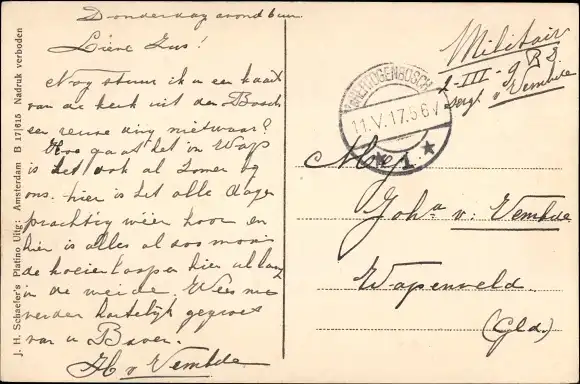 Donderdag avond 6 uur
Lieve Zus!
Nog stuur ik u een kaart
van de kerk uit den Bosch
een reuze ding nietwaar?
Hoe gaat het in Wap
is het ook al zomer bij
ons. hier is het alle dagen
prachtig weer hoor en
hier is alles al zoo mooi
de koeien loopen hier al lang
in de weide. Wees nu
verder hartelijk gegroet
van u Broer.
H v Vemde
Militair
1-III-9 R I
Sergt v Vemde
'S HERTOGENBOSCH
11.V.17.5-6V
1
Mej.
Joha v: Vemde
Wapenveld
(Gld.)
J. H. Schaefer's Platino Uitg: Amsterdam B 17|615 Nadruk verboden